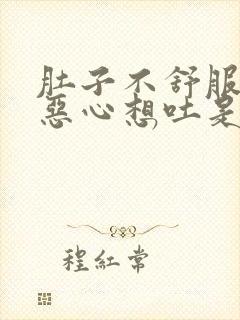 肚子不舒服
恶心想吐是
程红常